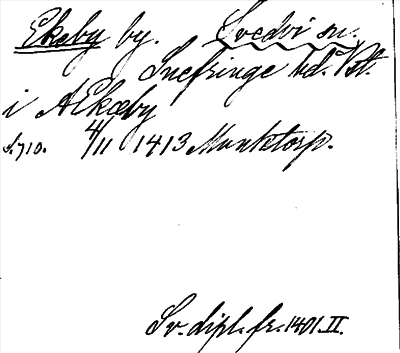 Ekeby by. Svedvi sn.
Snefringe hd. Vstl.
i Ækæby
s. 710. 4/11 1413 Munktorp.
Sv. dipl. fr. 1401. II.